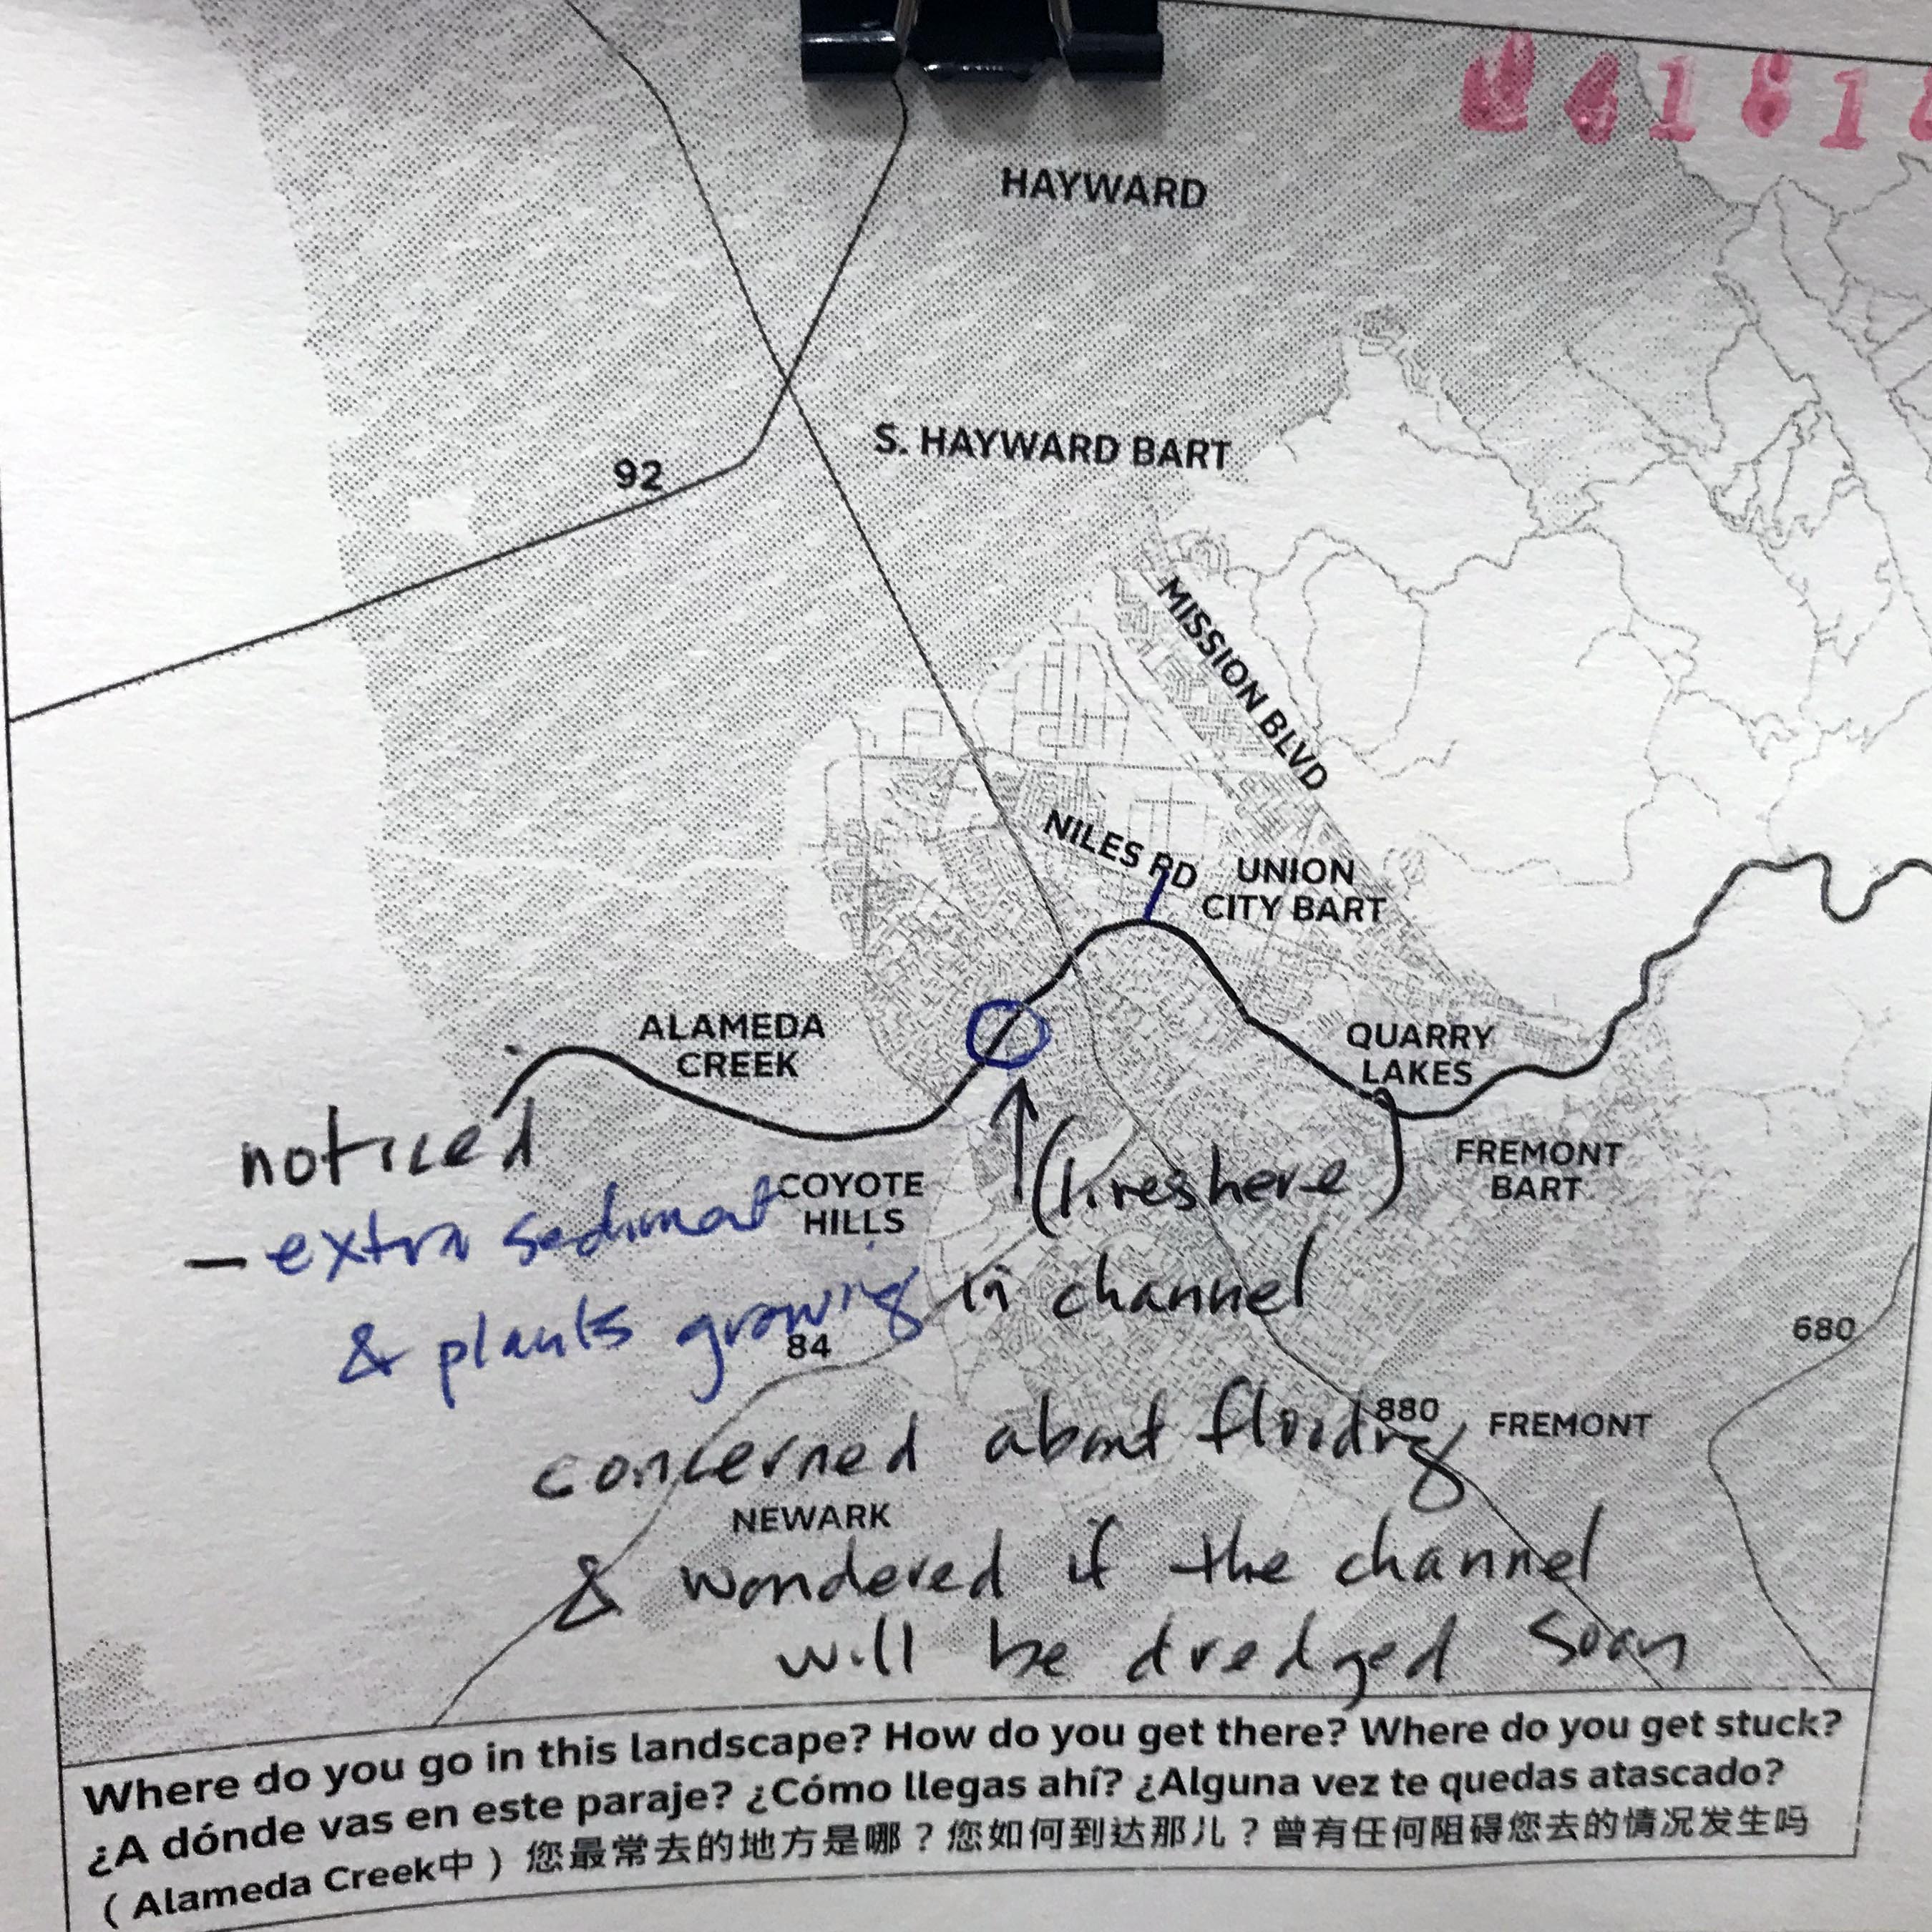 41818
HAYWARD
S. HAYWARD BART
92
MISSION BLVD
NILES RD
UNION
CITY BART
ALAMEDA
CREEK
QUARRY
LAKES
noticed
(lives here)
FREMONT
BART
COYOTE
HILLS
— extra sediment
& plants growing in channel
84
680
880
FREMONT
concerned about flooding
NEWARK
& wondered if the channel
will be dredged soon
Where do you go in this landscape? How do you get there? Where do you get stuck?
¿A dónde vas en este paraje? ¿Cómo llegas ahí? ¿Alguna vez te quedas atascado?
（Alameda Creek中）您最常去的地方是哪？您如何到达那儿？曾有任何阻碍您去的情况发生吗